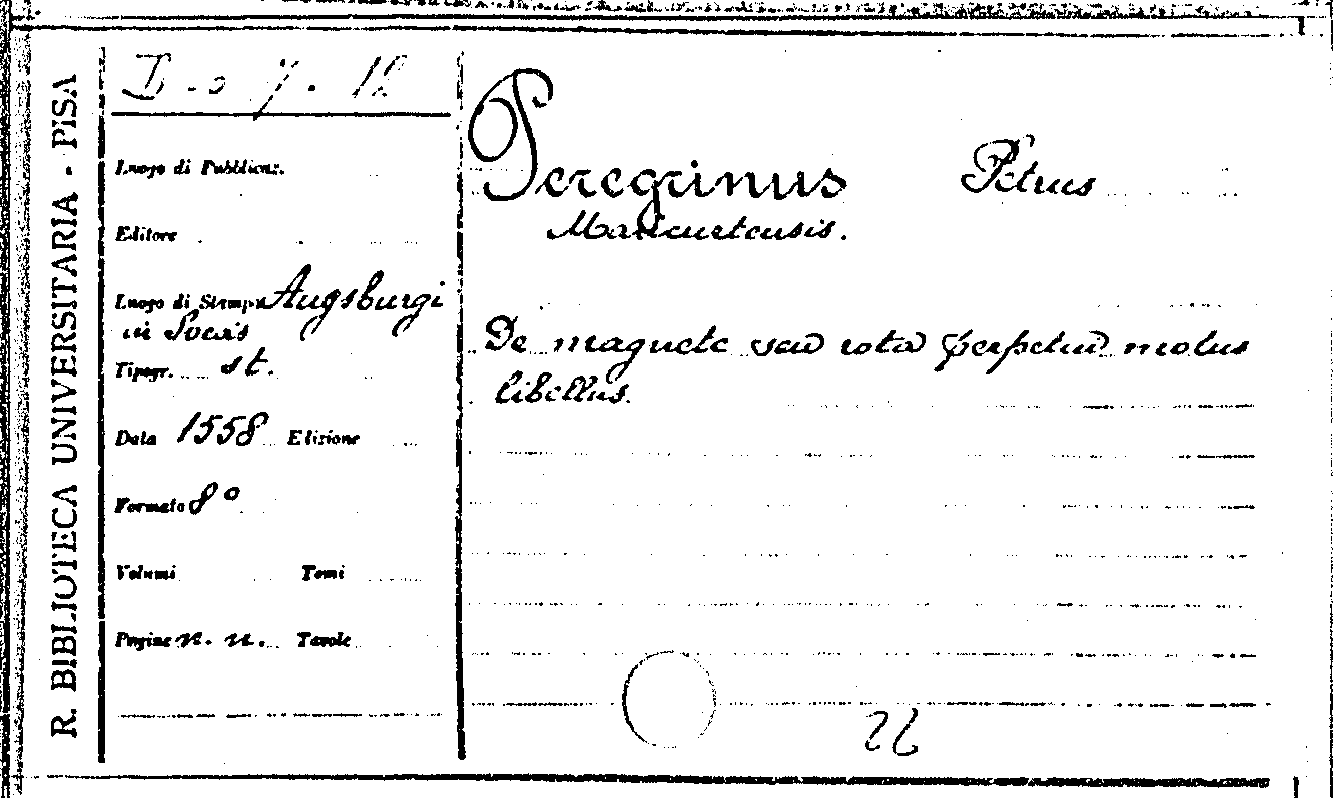 R. BIBLIOTECA UNIVERSITARIA - PISA
D. o 7. 12
Luogo di Pubblicaz.
Editore
Luogo di Stampa Augsburgi
in Suevis
Tipogr. st.
Data 1558 Edizione
Formato 8°
Volumi Tomi
Pagine n. n. Tavole
Peregrinus Petrus
Maricurtensis.
De magnete seu rota perpetui motus
libellus.